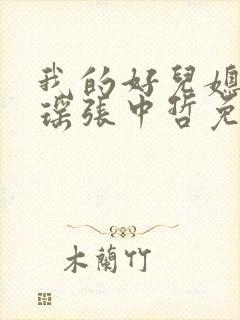 我的好兒媳
瑤張中哲免
木蘭竹